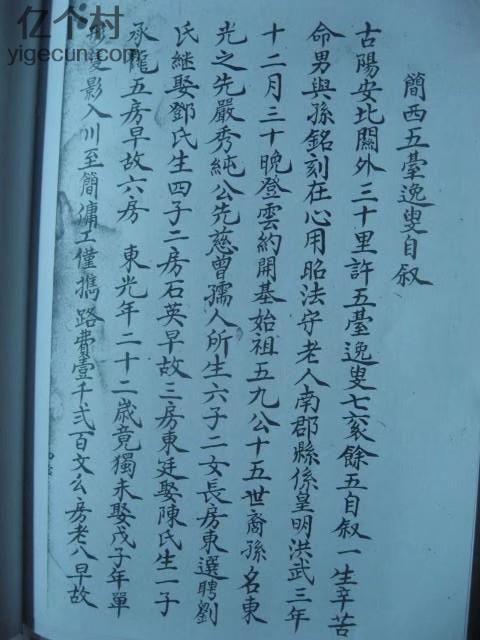 亿个村
yigecun.com
簡西五臺逸叟自叙
古陽安北關外三十里許五臺逸叟七袠餘五自叙一生辛苦
命男與孫銘刻在心用昭法守老人南郡縣係皇明洪武三年
十二月三十晚登雲約開基始祖五九公十五世裔孫名東
光之先嚴秀純公先慈曾孺人所生六子二女長房東選聘劉
氏継娶鄧氏生四子二房石英早故三房東廷娶陳氏生一子
承龍五房早故六房 東光年二十二歲竟獨未娶戊子年單
雙影入川至簡傭工僅擕路費壹千弍百文么房老八早故